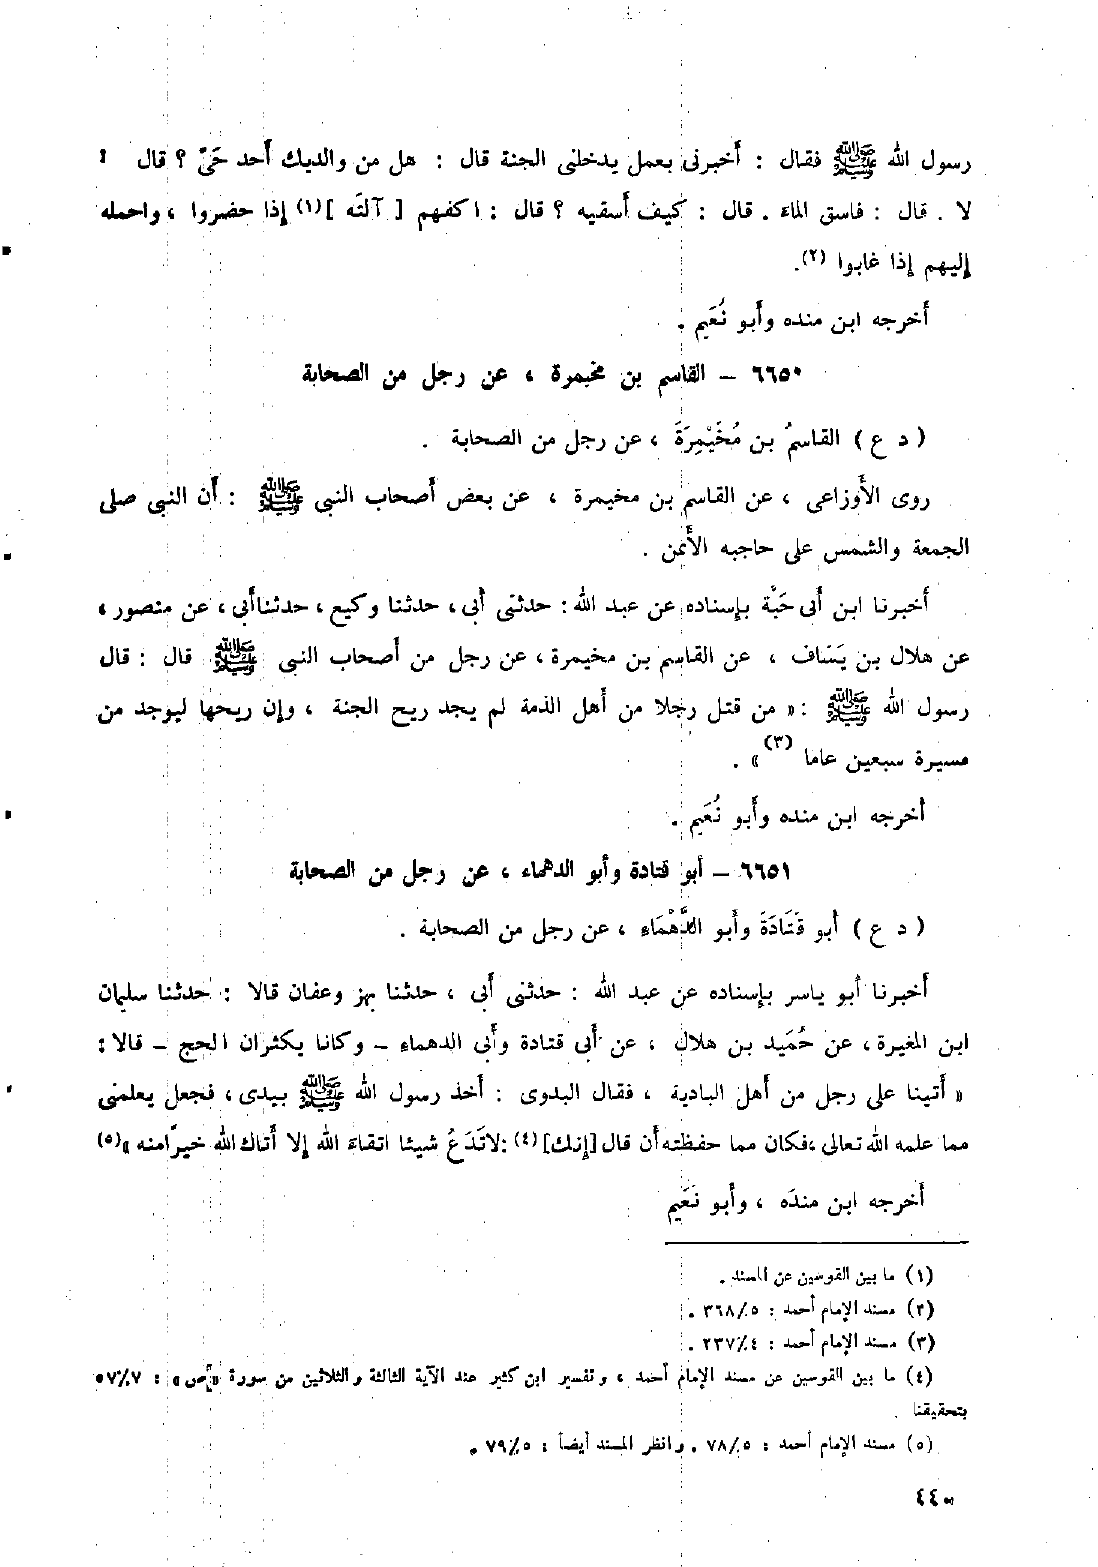 رسول الله ﷺ فقال : أخبرنى بعمل يدخلنى الجنة قال : هل من والديك أحد حَىّ ؟ قال :
لا . قال : فاسق الماء . قال : كيف أسقيه ؟ قال : اكفهم [ آلتَه ](١) إذا حضروا ، واحمله
إليهم إذا غابوا (٢).
أخرجه ابن منده وأبو نُعَيم .
٦٦٥٠ – القاسم بن مخيمرة ، عن رجل من الصحابة
( د ع ) القاسمُ بن مُخَيْمِرَةَ ، عن رجل من الصحابة .
روى الأوزاعى ، عن القاسم بن مخيمرة ، عن بعض أصحاب النبى ﷺ : أن النبى صلى
الجمعة والشمس على حاجبه الأيمن .
أخبرنا ابن أبى حَبَّة بإسناده عن عبد الله : حدثنى أبى ، حدثنا وكيع ، حدثنا أبى ، عن منصور ،
عن هلال بن يَسَاف ، عن القاسم بن مخيمرة ، عن رجل من أصحاب النبى ﷺ قال : قال
رسول الله ﷺ : « من قتل رجلا من أهل الذمة لم يجد ريح الجنة ، وإن ريحها ليوجد من
مسيرة سبعين عاما (٣) » .
أخرجه ابن منده وأبو نُعَيم .
٦٦٥١ – أبو قتادة وأبو الدهماء ، عن رجل من الصحابة
( د ع ) أبو قَتَادَةَ وأبو الدَّهْمَاءِ ، عن رجل من الصحابة .
أخبرنا أبو ياسر بإسناده عن عبد الله : حدثنى أبى ، حدثنا بهز وعفان قالا : حدثنا سليمان
ابن المغيرة ، عن حُمَيد بن هلال ، عن أبى قتادة وأبى الدهماء – وكانا يكثران الحج – قالا :
« أتينا على رجل من أهل البادية ، فقال البدوى : أخذ رسول الله ﷺ بيدى ، فجعل يعلمنى
مما علمه الله تعالى ، فكان مما حفظته أن قال [إنك](٤) : لا تَدَعُ شيئا اتقاءَ الله إلا أتاك الله خيرًا منه »(٥)
أخرجه ابن مندَه ، وأبو نُعَيم
(١) ما بين القوسين عن المسند .
(٢) مسند الإمام أحمد : ٣٦٨/٥ .
(٣) مسند الإمام أحمد : ٢٣٧/٤ .
(٤) ما بين القوسين عن مسند الإمام أحمد ، وتفسير ابن كثير عند الآية الثالثة والثلاثين من سورة «ص» : ٥٧/٧
بتحقيقنا .
(٥) مسند الإمام أحمد : ٧٨/٥ . وانظر المسند أيضاً : ٧٩/٥ .
٤٤٠